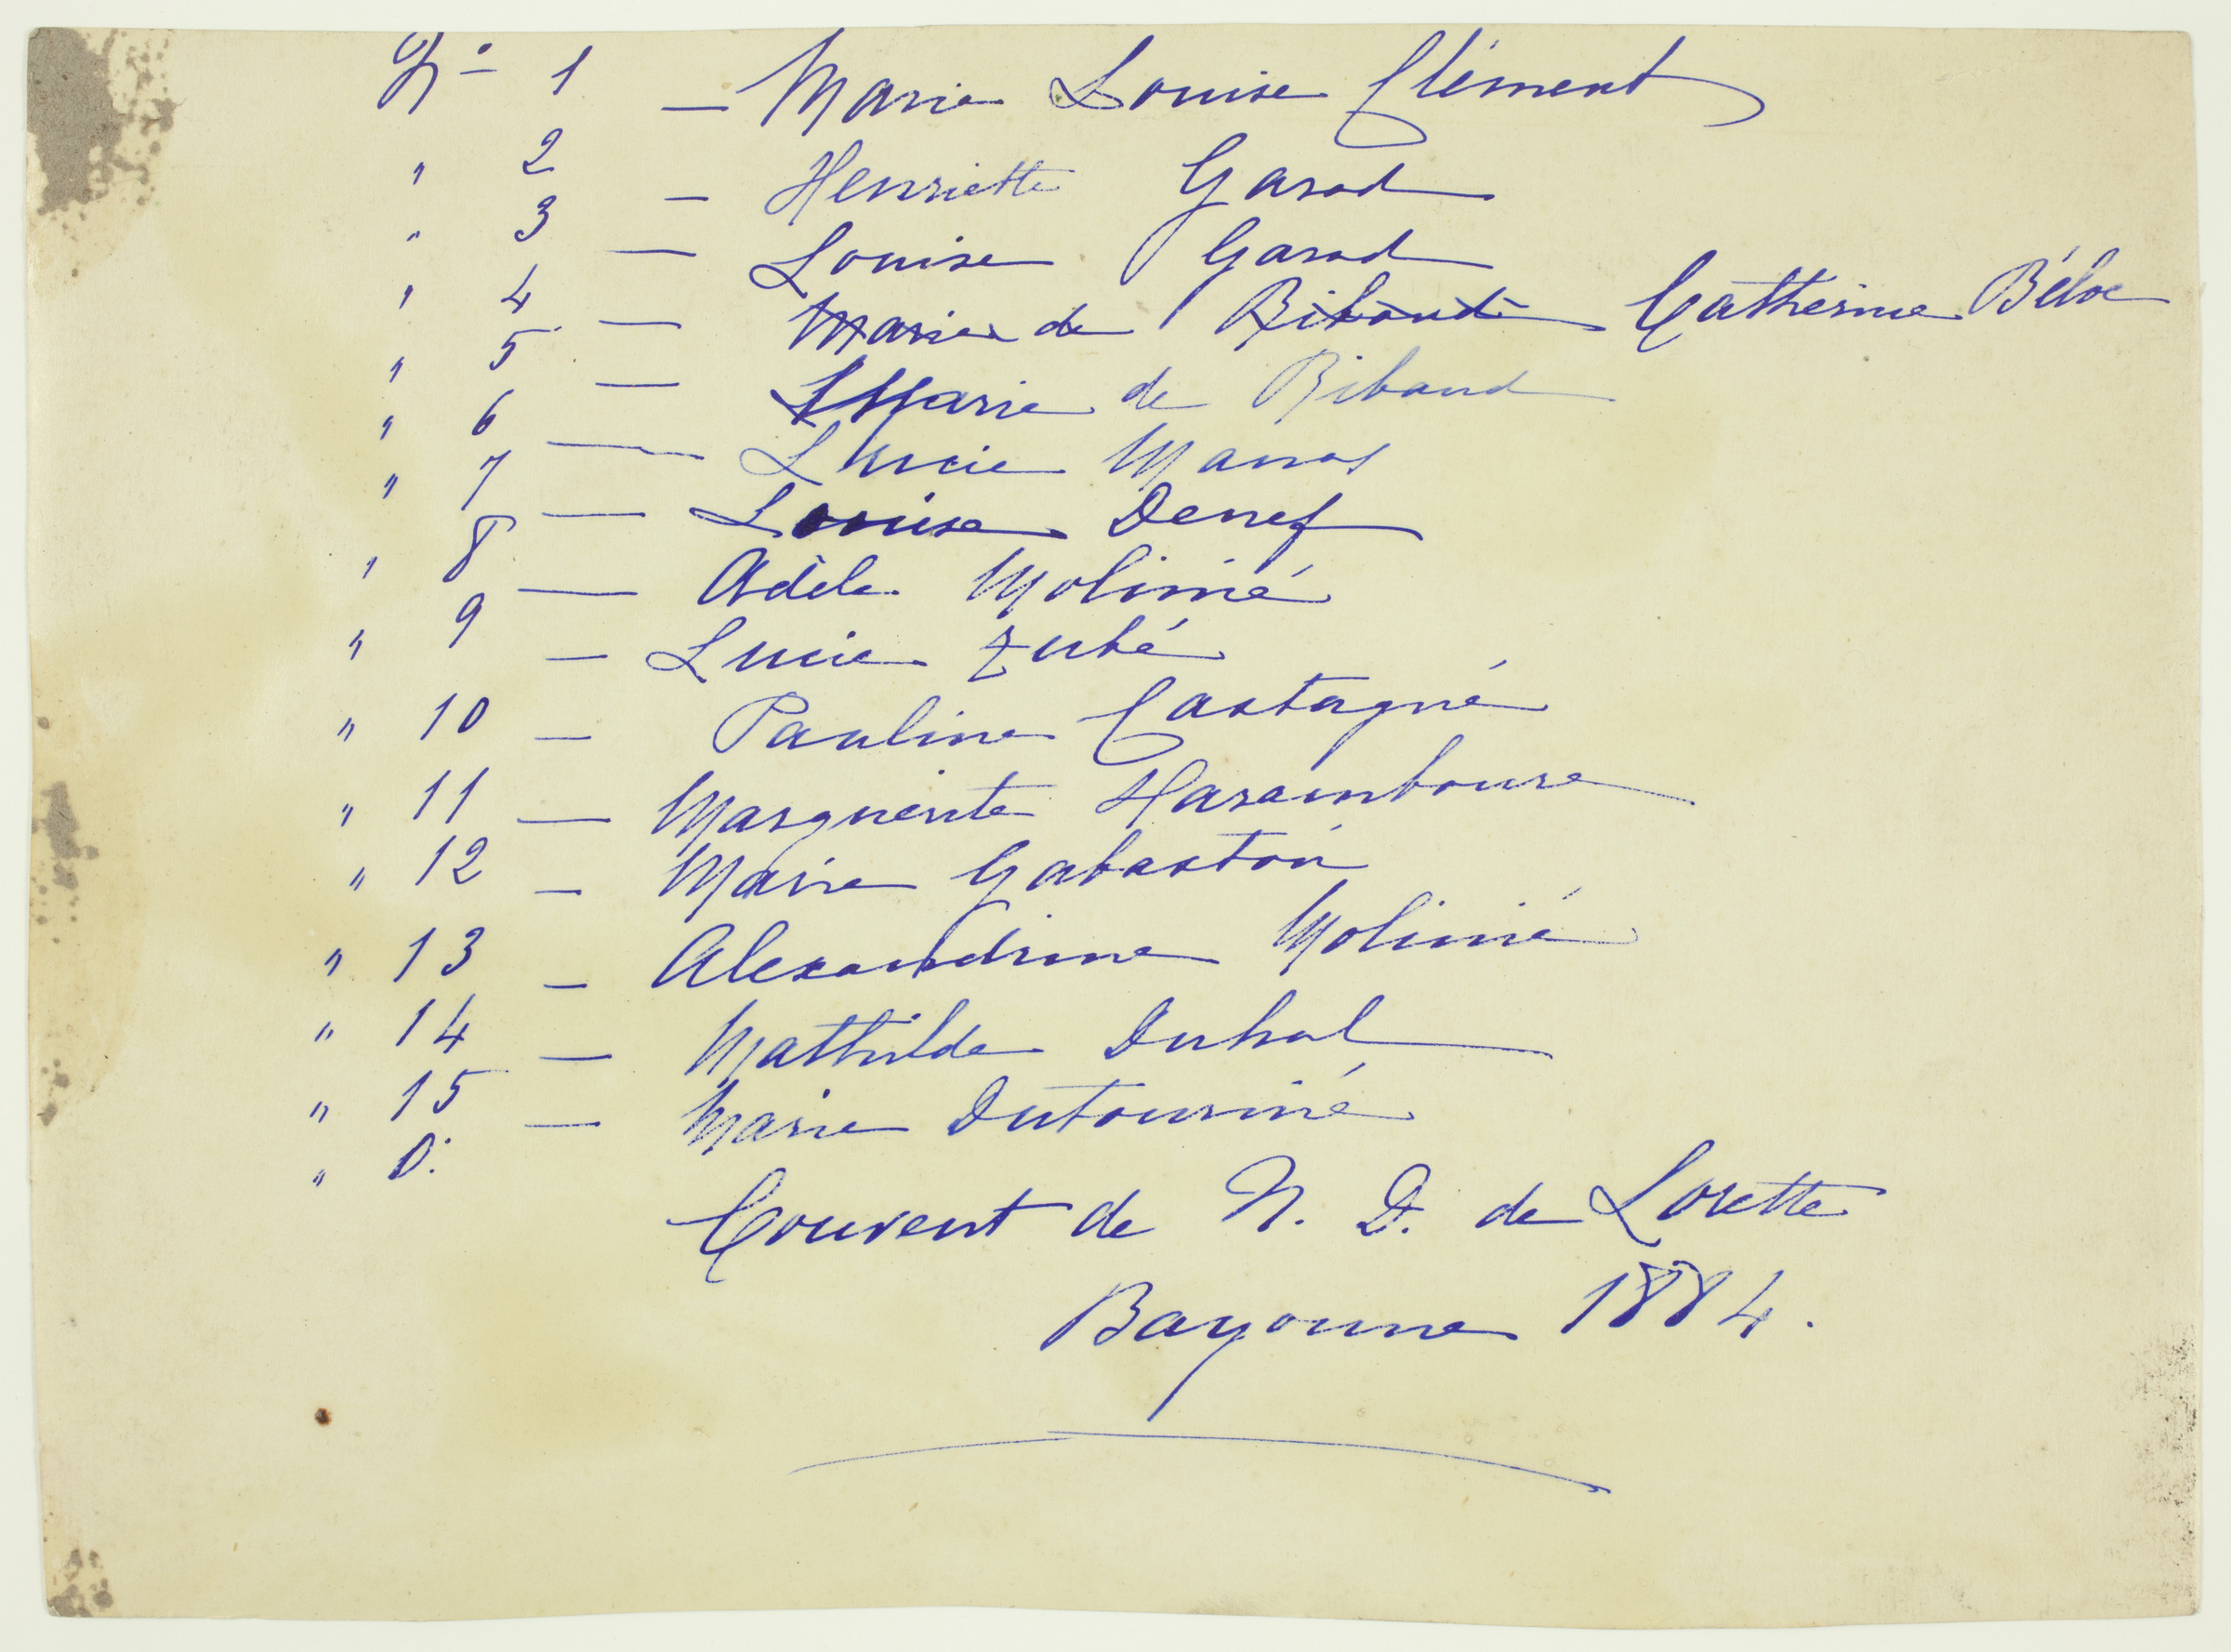 Nº 1 — Marie Louise Clément
" 2 — Henriette Garad
" 3 — Louise Garad
" 4 — Marie de Ribaud Catherine Béloc
" 5 — Marie de Ribaud
" 6 — Lucie
" 7 — Louise Denef
" 8 — Adèle Molinié
" 9 — Lucie Zubé
" 10 — Pauline Castagné
" 11 — Marguerite Haramboure
" 12 — Marie Gabaston
" 13 — Alexandrine Molinié
" 14 — Mathilde Duhal
" 15 — Marie Dutournié
" 0.
Couvent de N. D. de Lorette
Bayonne 1884.